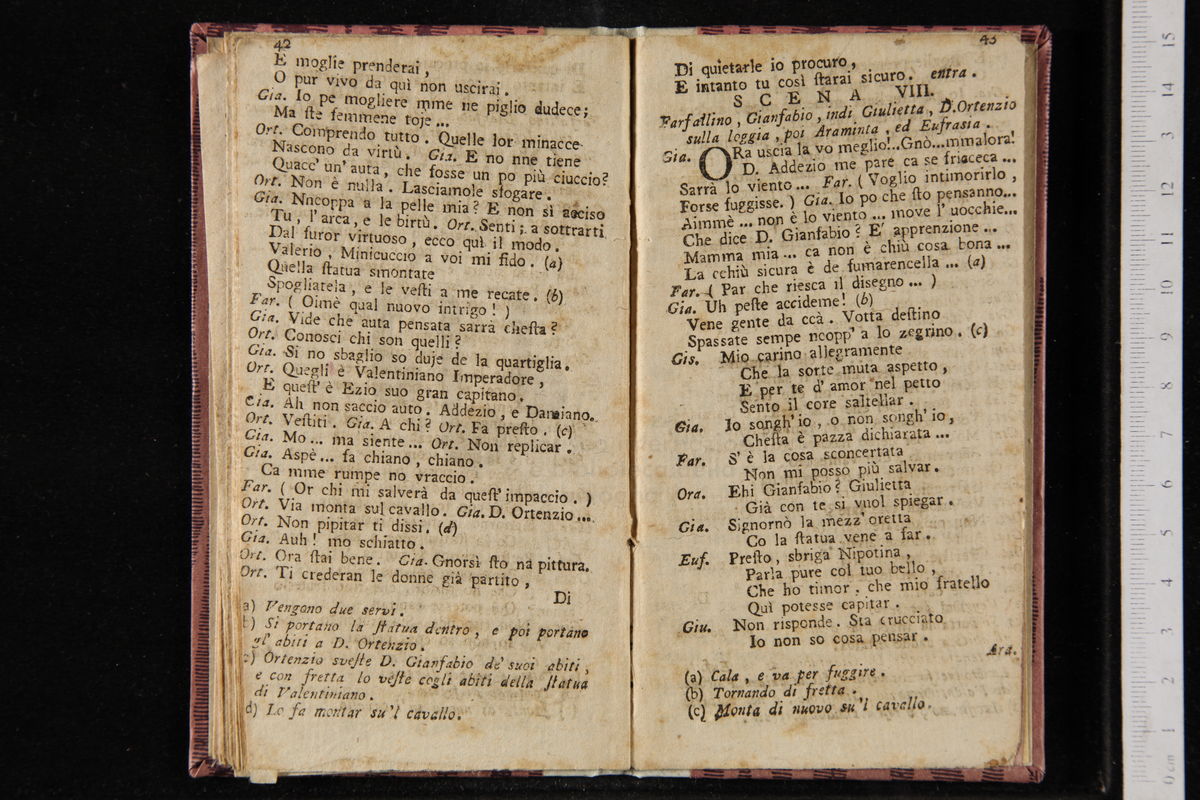 42
E moglie prenderai,
O pur vivo da quì non uscirai.
Gia. Io pe mogliere mme ne piglio dudece;
Ma ste femmene toje...
Ort. Comprendo tutto. Quelle lor minacce
Nascono da virtù. Gia. E no nne tiene
Quacc' un' auta, che fosse un po più ciuccio?
Ort. Non è nulla. Lasciamole sfogare.
Gia. Nncoppa a la pelle mia? E non sì acciso
Tu, l'arca, e le birtù. Ort. Senti; a sottrarti
Dal furor virtuoso, ecco quì il modo.
Valerio, Minicuccio a voi mi fido. (a)
Quella statua smontate
Spogliatela, e le vesti a me recate. (b)
Far. (Oimè qual nuovo intrigo!)
Gia. Vide che auta pensata sarrà chesta?
Ort. Conosci chi son quelli?
Gia. Si no sbaglio so duje de la quartiglia.
Ort. Quegli è Valentiniano Imperadore,
E quest' è Ezio suo gran capitano.
Gia. Ah non saccio auto. Addezio, e Damiano.
Ort. Vestiti. Gia. A chi? Ort. Fa presto. (c)
Gia. Mo... ma siente... Ort. Non replicar.
Gia. Aspè... fa chiano, chiano.
Ca mme rumpe no vraccio.
Far. (Or chi mi salverà da quest' impaccio.)
Ort. Via monta sul cavallo. Gia. D. Ortenzio...
Ort. Non pipitar ti dissi. (d)
Gia. Auh! mo schiatto.
Ort. Ora stai bene. Gia. Gnorsì sto na pittura.
Ort. Ti crederan le donne già partito,
Di
a) Vengono due servi.
b) Si portano la statua dentro, e poi portano
gl' abiti a D. Ortenzio.
c) Ortenzio sveste D. Gianfabio de' suoi abiti,
e con fretta lo veste cogli abiti della statua
di Valentiniano.
d) Lo fa montar su'l cavallo.
43
Di quietarle io procuro,
E intanto tu così starai sicuro. entra.
SCENA VIII.
Farfallino, Gianfabio, indi Giulietta, D. Ortenzio
sulla loggia, poi Araminta, ed Eufrasia.
Gia. ORa uscia la vo meglio!..Gnò...mmalora!
D. Addezio me pare ca se friaceca...
Sarrà lo viento... Far. (Voglio intimorirlo,
Forse fuggisse.) Gia. Io po che sto pensanno...
Aimmè... non è lo viento... move l' uocchie...
Che dice D. Gianfabio? E' apprenzione...
Mamma mia... ca non è chiù cosa bona...
La cchiù sicura è de fumarencella... (a)
Far. (Par che riesca il disegno...)
Gia. Uh peste accideme! (b)
Vene gente da ccà. Votta destino
Spassate sempe ncopp' a lo zegrino. (c)
Gis. Mio carino allegramente
Che la sorte muta aspetto,
E per te d' amor nel petto
Sento il core saltellar.
Gia. Io songh' io, o non songh' io,
Chesta è pazza dichiarata...
Far. S' è la cosa sconcertata
Non mi posso più salvar.
Ora. Ehi Gianfabio? Giulietta
Già con te si vuol spiegar.
Gia. Signornò la mezz' oretta
Co la statua vene a far.
Euf. Presto, sbriga Nipotina,
Parla pure col tuo bello,
Che ho timor, che mio fratello
Quì potesse capitar.
Giu. Non risponde. Sta crucciato
Io non so cosa pensar.
Ara.
(a) Cala, e va per fuggire.
(b) Tornando di fretta.
(c) Monta di nuovo su'l cavallo.
15
14
13
12
11
10
9
8
7
6
5
4
3
2
1
0 cm